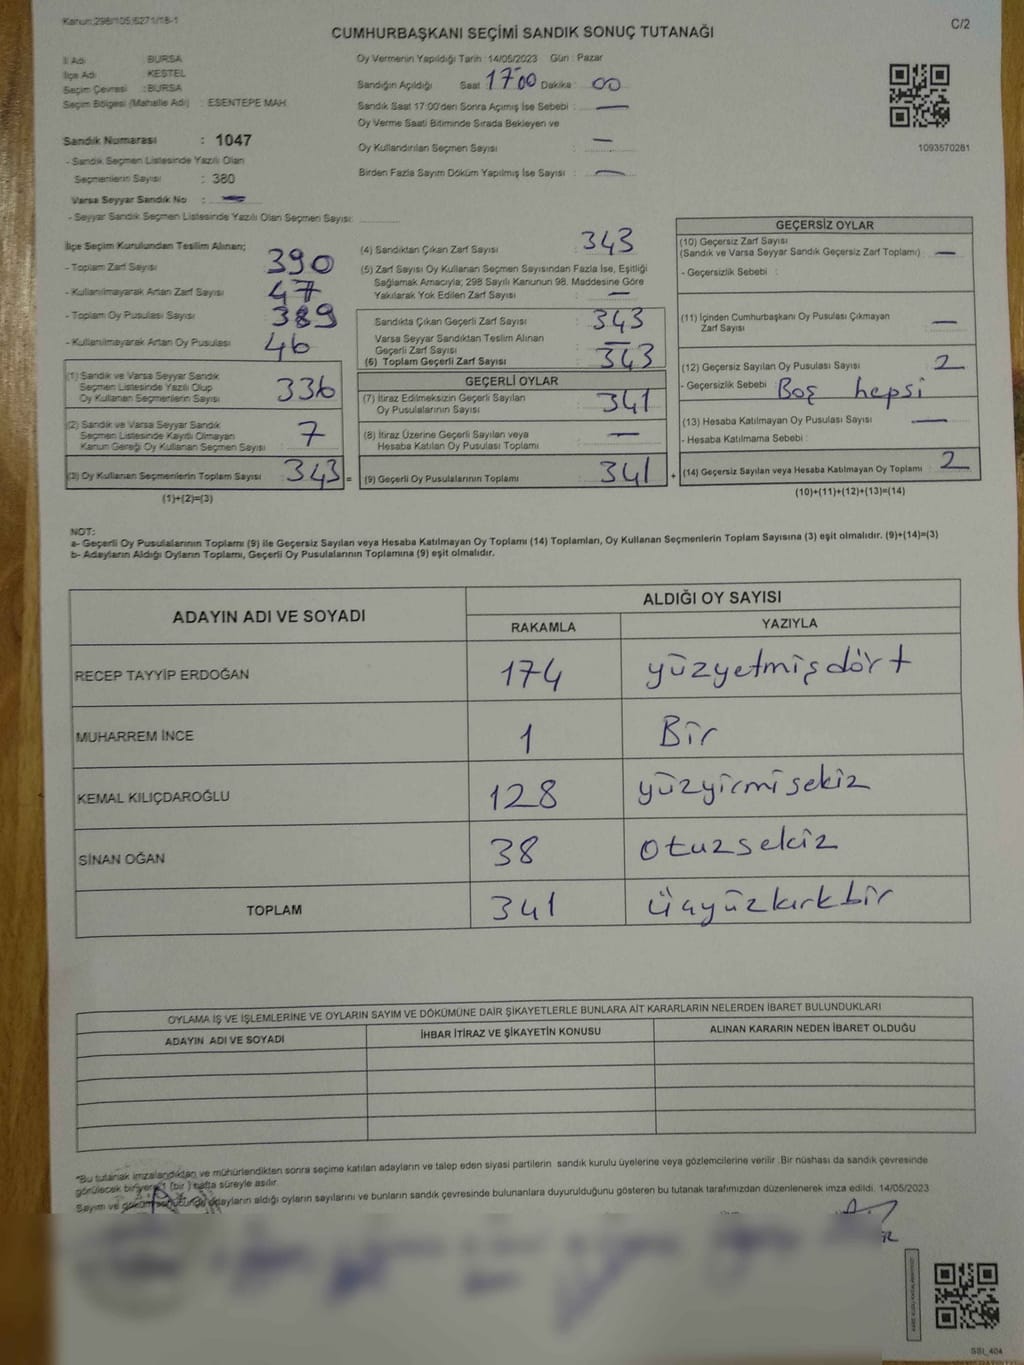 Kanun:298/105;6271/18-1
C/2
CUMHURBAŞKANI SEÇİMİ SANDIK SONUÇ TUTANAĞI
İl Adı : BURSA
İlçe Adı : KESTEL
Seçim Çevresi : BURSA
Seçim Bölgesi (Mahalle Adı) : ESENTEPE MAH.
Sandık Numarası : 1047
- Sandık Seçmen Listesinde Yazılı Olan
Seçmenlerin Sayısı : 380
Varsa Seyyar Sandık No : —
- Seyyar Sandık Seçmen Listesinde Yazılı Olan Seçmen Sayısı:
Oy Vermenin Yapıldığı Tarih : 14/05/2023 Gün : Pazar
Sandığın Açıldığı Saat 17:00 Dakika : 00
Sandık Saat 17:00'den Sonra Açımış İse Sebebi : —
Oy Verme Saati Bitiminde Sırada Bekleyen ve
Oy Kullandırılan Seçmen Sayısı : —
Birden Fazla Sayım Döküm Yapılmış İse Sayısı : —
1093570281
İlçe Seçim Kurulundan Teslim Alınan;
- Toplam Zarf Sayısı 390
- Kullanılmayarak Artan Zarf Sayısı 47
- Toplam Oy Pusulası Sayısı 389
- Kullanılmayarak Artan Oy Pusulası 46
(1) Sandık ve Varsa Seyyar Sandık
Seçmen Listesinde Yazılı Olup
Oy Kullanan Seçmenlerin Sayısı 336
(2) Sandık ve Varsa Seyyar Sandık
Seçmen Listesinde Kayıtlı Olmayan
Kanun Gereği Oy Kullanan Seçmen Sayısı : 7
(3) Oy Kullanan Seçmenlerin Toplam Sayısı : 343 =
(1)+(2)=(3)
(4) Sandıktan Çıkan Zarf Sayısı 343
(5) Zarf Sayısı Oy Kullanan Seçmen Sayısından Fazla İse, Eşitliği
Sağlamak Amacıyla; 298 Sayılı Kanunun 98. Maddesine Göre
Yakılarak Yok Edilen Zarf Sayısı : —
Sandıkta Çıkan Geçerli Zarf Sayısı : 343
Varsa Seyyar Sandıktan Teslim Alınan
Geçerli Zarf Sayısı : —
(6) Toplam Geçerli Zarf Sayısı : 343
GEÇERLİ OYLAR
(7) İtiraz Edilmeksizin Geçerli Sayılan
Oy Pusulalarının Sayısı : 341
(8) İtiraz Üzerine Geçerli Sayılan veya
Hesaba Katılan Oy Pusulası Toplamı : —
(9) Geçerli Oy Pusulalarının Toplamı : 341 +
GEÇERSİZ OYLAR
(10) Geçersiz Zarf Sayısı
(Sandık ve Varsa Seyyar Sandık Geçersiz Zarf Toplamı) : —
- Geçersizlik Sebebi :
(11) İçinden Cumhurbaşkanı Oy Pusulası Çıkmayan
Zarf Sayısı : —
(12) Geçersiz Sayılan Oy Pusulası Sayısı : 2
- Geçersizlik Sebebi : Boş hepsi
(13) Hesaba Katılmayan Oy Pusulası Sayısı : —
- Hesaba Katılmama Sebebi :
(14) Geçersiz Sayılan veya Hesaba Katılmayan Oy Toplamı : 2
(10)+(11)+(12)+(13)=(14)
NOT:
a- Geçerli Oy Pusulalarının Toplamı (9) ile Geçersiz Sayılan veya Hesaba Katılmayan Oy Toplamı (14) Toplamları, Oy Kullanan Seçmenlerin Toplam Sayısına (3) eşit olmalıdır. (9)+(14)=(3)
b- Adayların Aldığı Oyların Toplamı, Geçerli Oy Pusulalarının Toplamına (9) eşit olmalıdır.
ADAYIN ADI VE SOYADI
ALDIĞI OY SAYISI
RAKAMLA YAZIYLA
RECEP TAYYİP ERDOĞAN 174 yüzyetmişdört
MUHARREM İNCE 1 Bir
KEMAL KILIÇDAROĞLU 128 yüzyirmisekiz
SİNAN OĞAN 38 otuzsekiz
TOPLAM 341 üçyüzkırkbir
OYLAMA İŞ VE İŞLEMLERİNE VE OYLARIN SAYIM VE DÖKÜMÜNE DAİR ŞİKAYETLERLE BUNLARA AİT KARARLARIN NELERDEN İBARET BULUNDUKLARI
ADAYIN ADI VE SOYADI İHBAR İTİRAZ VE ŞİKAYETİN KONUSU ALINAN KARARIN NEDEN İBARET OLDUĞU
*Bu tutanak imzalandıktan ve mühürlendikten sonra seçime katılan adayların ve talep eden siyasi partilerin sandık kurulu üyelerine veya gözlemcilerine verilir .Bir nüshası da sandık çevresinde
görülecek bir yere 1 (bir ) hafta süreyle asılır.
Sayım ve döküm sonucunda adayların aldığı oyların sayılarını ve bunların sandık çevresinde bulunanlara duyurulduğunu gösteren bu tutanak tarafımızdan düzenlenerek imza edildi. 14/05/2023
SBI_404